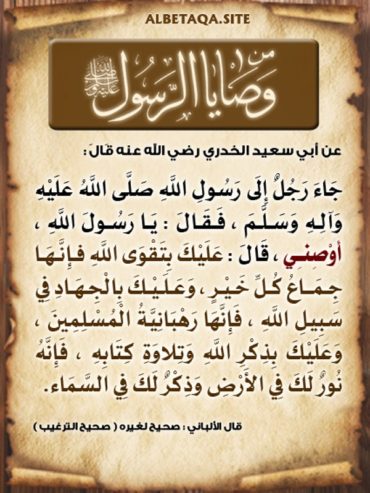 ALBETAQA.SITE
من
وصايا الرسول
صلى الله عليه وسلم
عن أبي سعيد الخدري رضي الله عنه قال :
جَاءَ رَجُلٌ إِلَى رَسُولِ اللَّهِ صَلَّى اللَّهُ عَلَيْهِ
وَآلِهِ وَسَلَّمَ ، فَقَالَ : يَا رَسُولَ اللَّهِ ،
أَوْصِنِي ، قَالَ : عَلَيْكَ بِتَقْوَى اللَّهِ فَإِنَّهَا
جِمَاعُ كُلِّ خَيْرٍ ، وَعَلَيْكَ بِالْجِهَادِ فِي
سَبِيلِ اللَّهِ ، فَإِنَّهَا رَهْبَانِيَّةُ الْمُسْلِمِينَ ،
وَعَلَيْكَ بِذِكْرِ اللَّهِ وَتِلاوَةِ كِتَابِهِ ، فَإِنَّهُ
نُورٌ لَكَ فِي الأَرْضِ وَذِكْرٌ لَكَ فِي السَّمَاءِ.
قال الألباني : صحيح لغيره ( صحيح الترغيب )